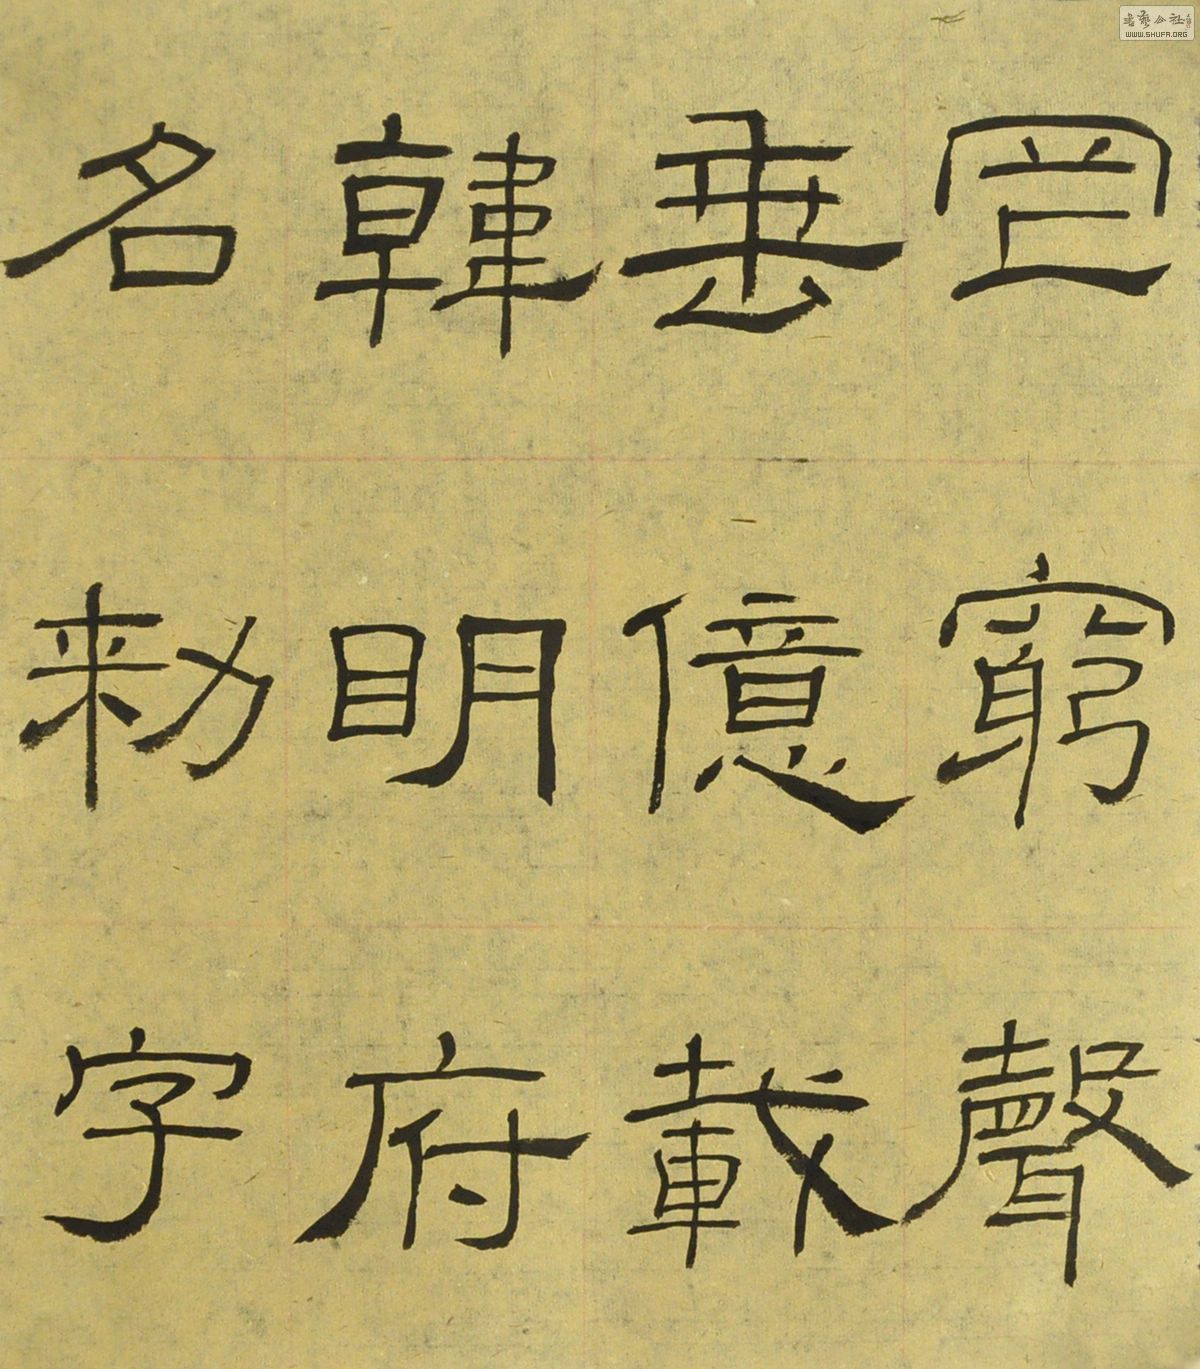 罔窮聲
垂億載
韓明府
名勑字
書藝公社
WWW.SHUFA.ORG